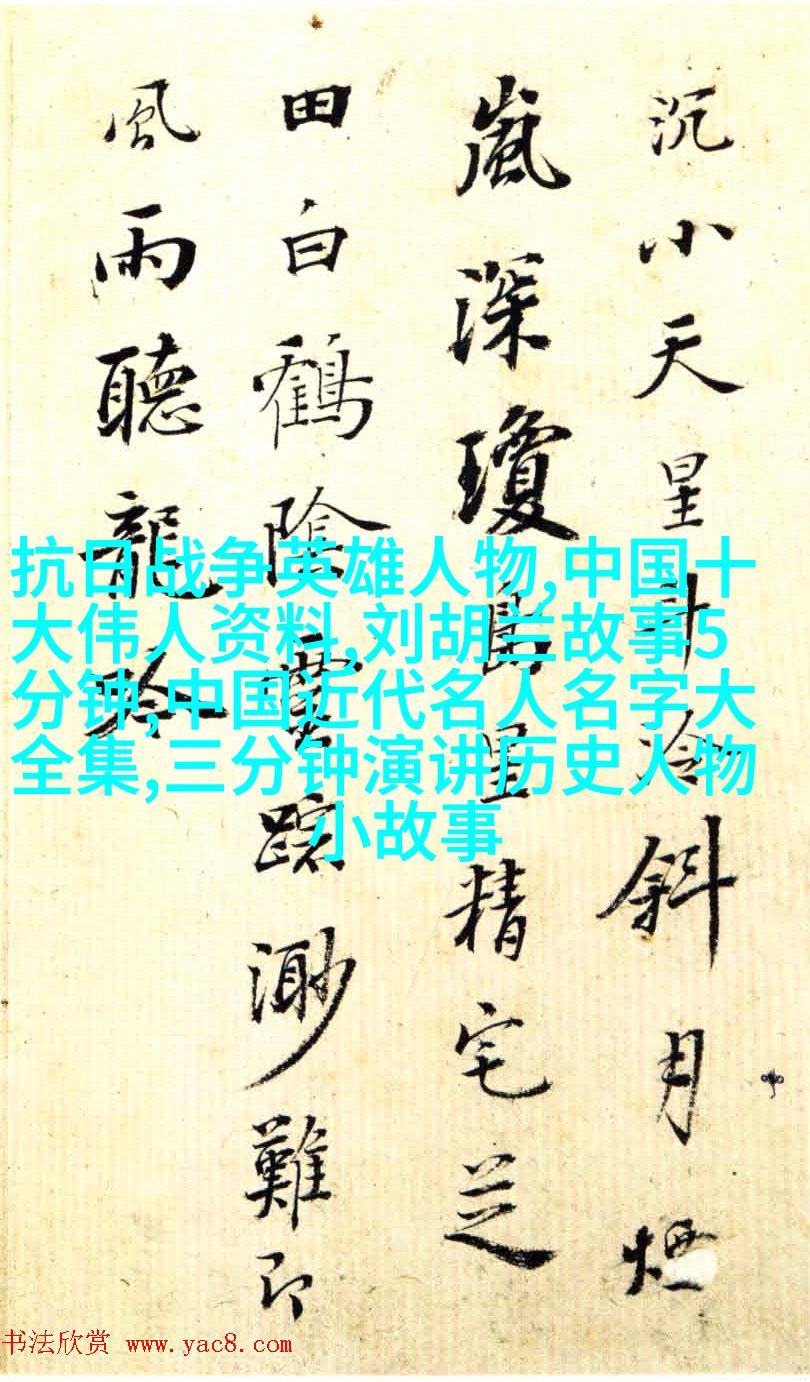 沉小天星斗冷斜月煙
嵐深瓊島里精宅芝
田白鶴陰雲蹤渺難即
風雨聽龍吟
抗日战争英雄人物,中国十
大伟人资料,刘胡兰故事5
分钟,中国近代名人名字大
全集,三分钟演讲历史人物
小故事
书法欣赏 www.yac8.com